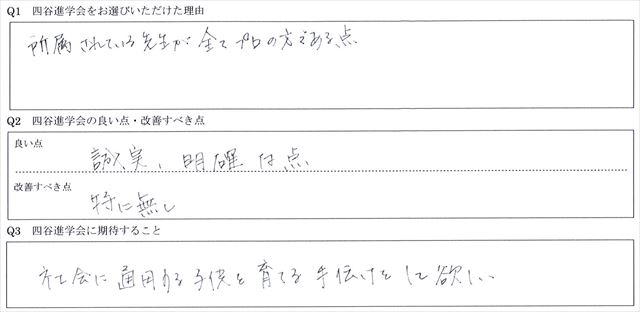 Q1 四谷進学会をお選びいただけた理由
所属されている先生が全てプロの方である点
Q2 四谷進学会の良い点・改善すべき点
良い点
誠実、明確な点
改善すべき点
特に無し
Q3 四谷進学会に期待すること
社会に通用する子供を育てる手伝いをして欲しい。